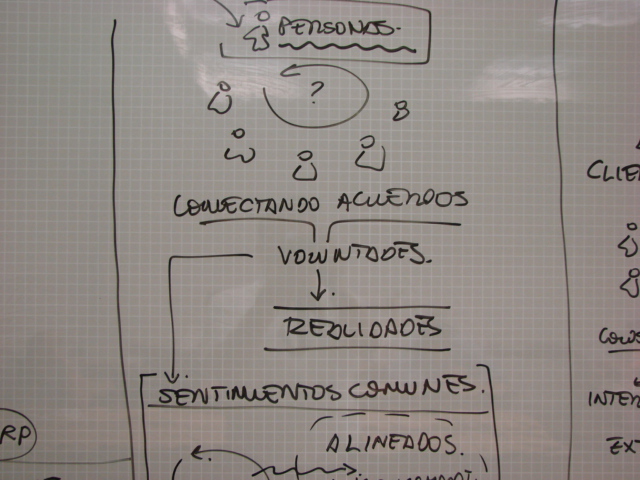 PERSONAS.
?
CONECTANDO ACUERDOS
VOLUNTADES.
REALIDADES
SENTIMIENTOS COMUNES.
ALINEADOS.
RP
CLIE
INTER
EXT